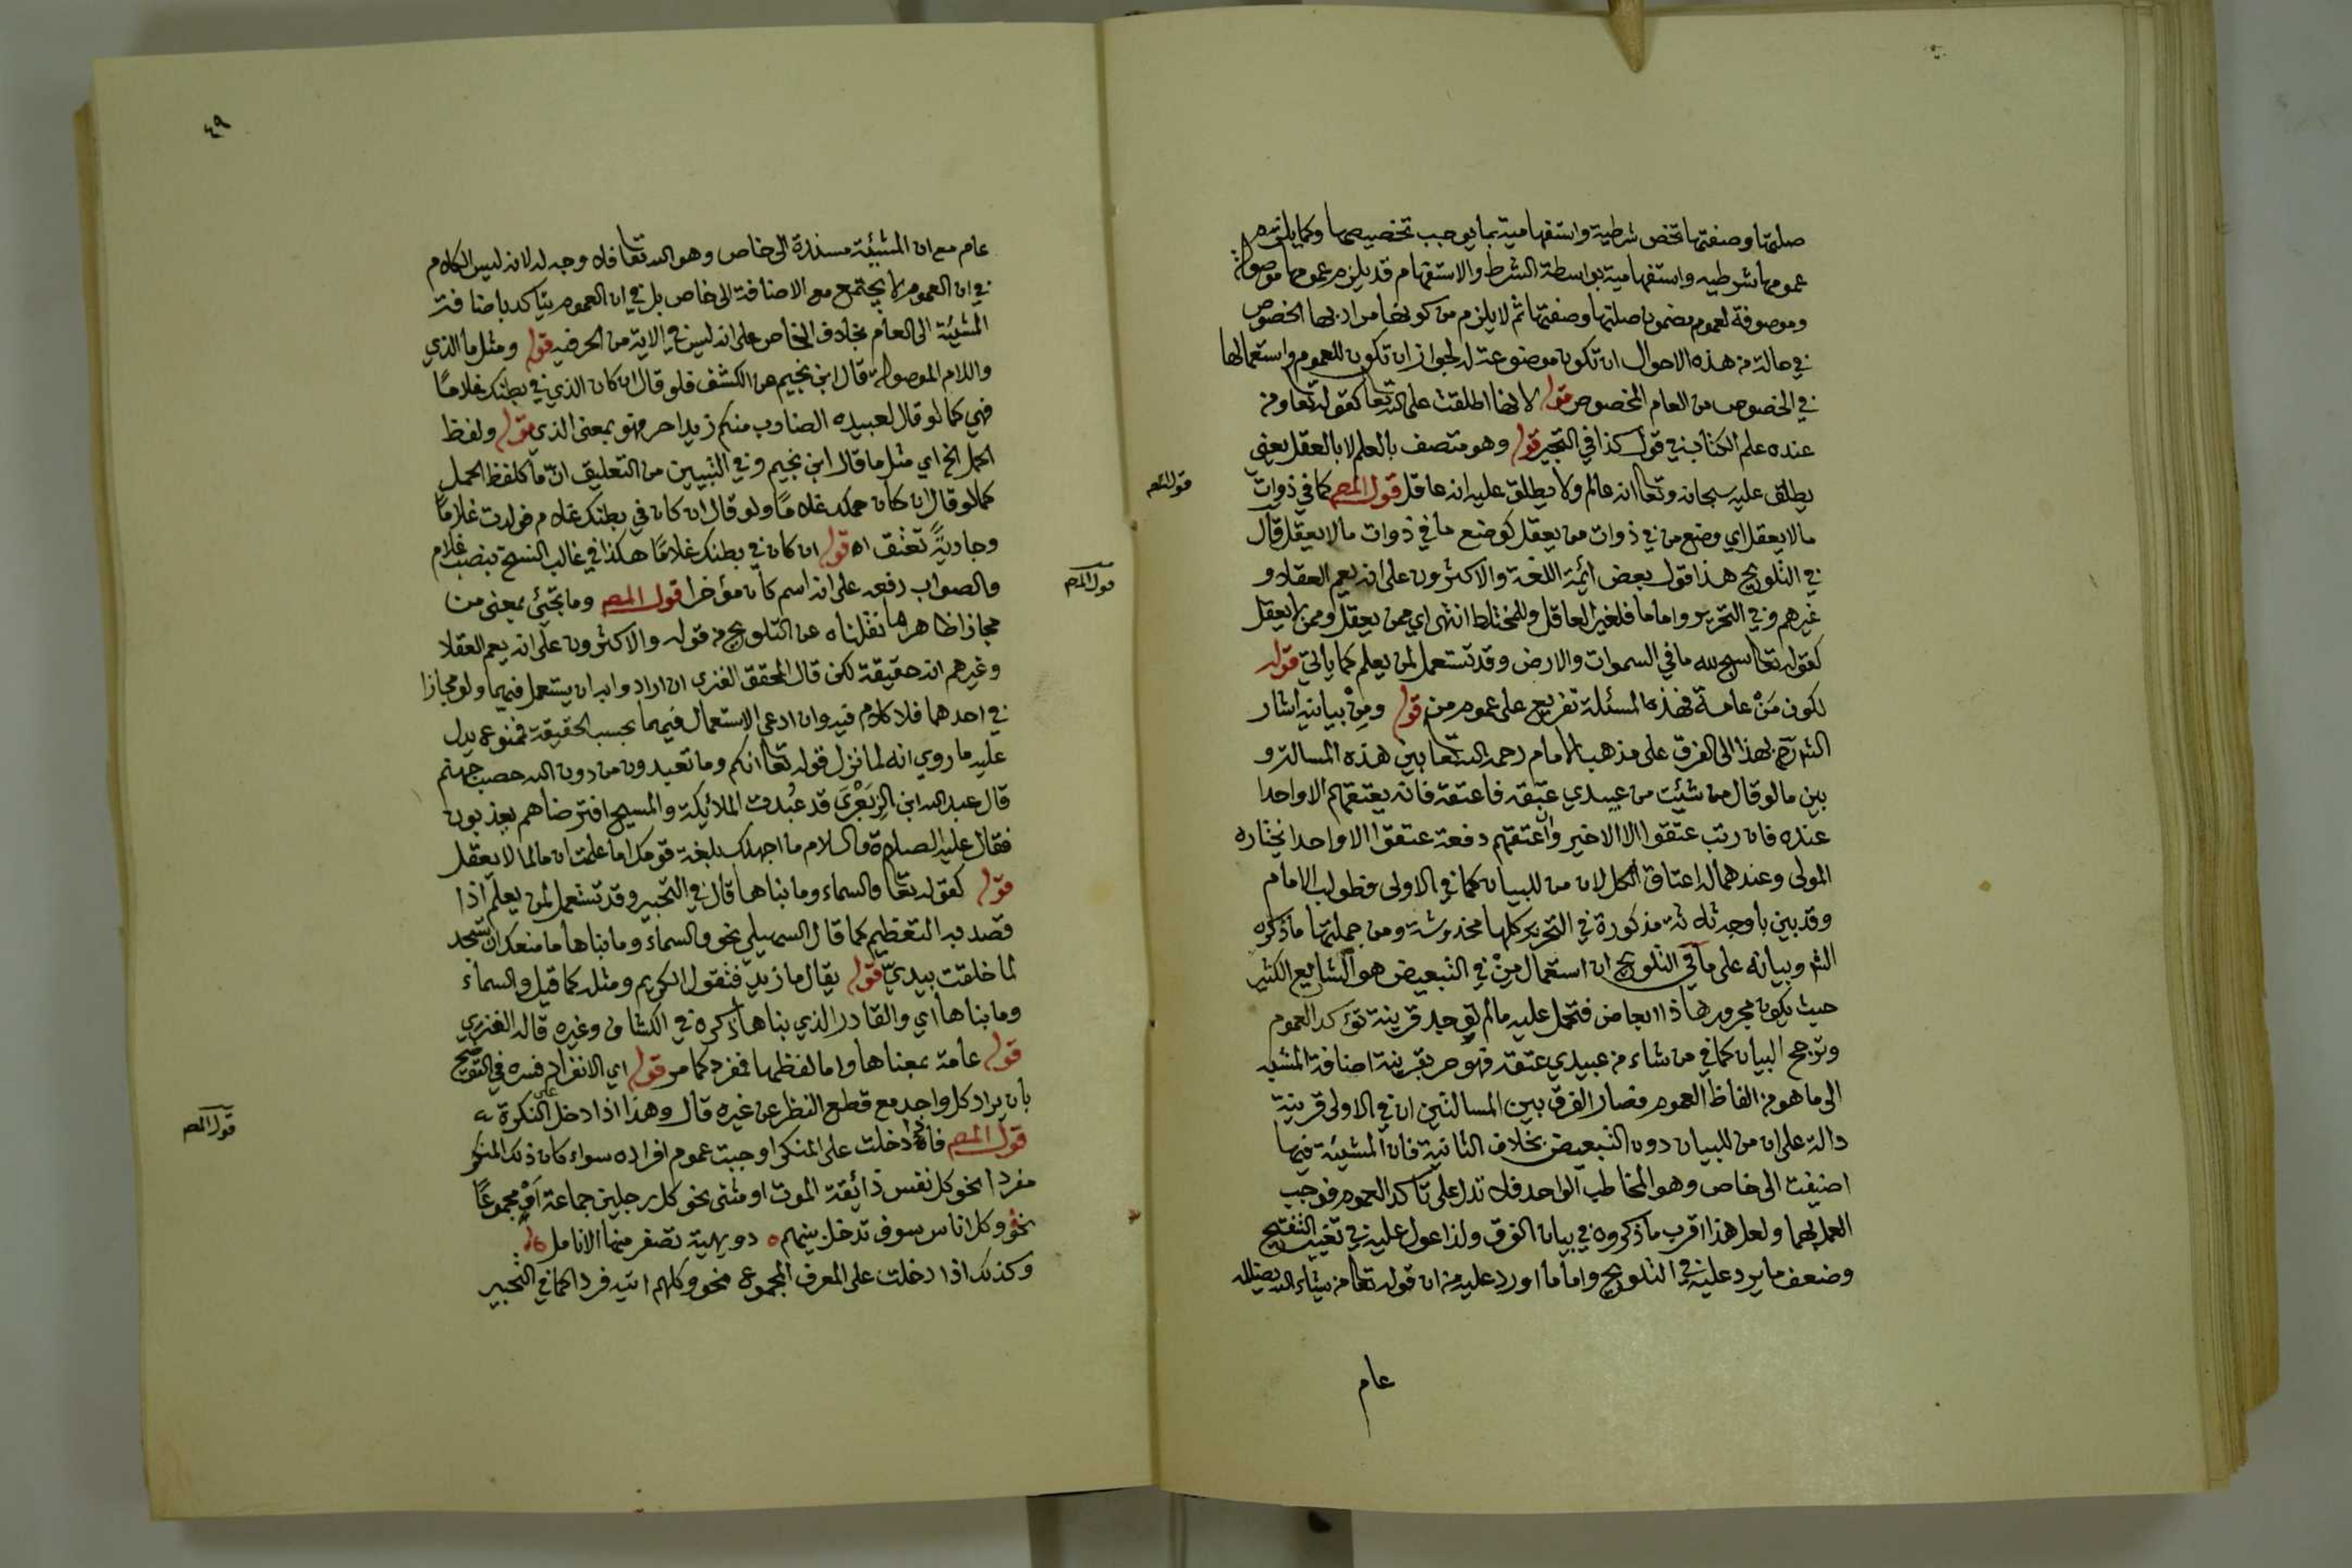 صلتها وصفتها تخص شرطية واستفهامية بما يوجب تخصيصها وكما يلزم
عمومها شرطيه واستفهامية بواسطة الشرط والاستفهام قد يلزم عمومها موصولة
وموصوفة لعموم مضمون صلتها وصفتها ثم لا يلزم من كونها مراد بها الخصوص
في حالة من هذه الاحوال ان تكون موضوعة له لجواز ان تكون للعموم واستعمالها
في الخصوص من العام المخصوص قوله لانها اطلقت على الله تعا كقوله تعا ومن
عنده علم الكتاب في قول كذا في التحبير قوله وهو متصف بالعلم لا بالعقل يعني
يطلق عليه سبحانه وتعا انه عالم ولا يطلق عليه انه عاقل قول المصـ كما في ذوات
قول المص
ما لا يعقل اي وضع من في ذوات من يعقل كوضع ما في ذوات ما لا يعقل قال
في التلويح هذا قول بعض ائمة اللغة والاكثرون على انه يعم العقلا و
غيرهم وفي التحرير واما ما فلغير العاقل وللمختلط انتهى اي ممن يعقل وممن لا يعقل
كقوله تعا سبح لله ما في السموات والارض وقد تستعمل لمن يعلم كما ياتي قوله
لكون مَنْ عامة فهذه المسئلة تفريع على عموم من قوله ومِنْ بيانيه اشار
الش بهذا الى الفرق على مذهب الامام رحمه الله تعا بين هذه المسالة و
بين ما لو قال من شئت من عبيدي عتقه فاعتقه فانه يعتقهم الا واحدا
عنده فان رتب عتقوا الا الاخير وان اعتقهم دفعة عتقوا الا واحدا يختاره
المولى وعندهما له اعتاق الكل لان من للبيان كما في الاولى فطولب الامام
وقد بين باوجه ثلاثة مذكورة في التحرير كلها مخدوشة ومن جملتها ما ذكره
الش وبيانه على ما في التلويح ان استعمال مِنْ في التبعيض هو الشايع الكثير
حيث يكون مجرورها ذا ابعاض فتحمل عليه ما لم توجد قرينة تؤكد العموم
وترجح البيان كما في من شاء من عبيدي عتقه فهو حر بقرينة اضافة المشيه
الى ما هو من الفاظ العموم فصار الفرق بين المسالتين ان في الاولى قرينة
دالة على ان من للبيان دون التبعيض بخلاف الثانية فان المشيئة فيها
اضيفت الى خاص وهو المخاطب الواحد فلا تدل على تاكد العموم فوجب
العمل بهما ولعل هذا اقرب ما ذكروه في بيان الفرق ولذا عول عليه في تغيير التنقيح
وضعف ما يرد عليه في التلويح واما ما اورد عليه من ان قوله تعا من يشاء الله يضلله
عام
٤٩
عام مع ان المشيئة مسندة الى خاص وهو الله تعا فلا وجه له لانه ليس الكلام
في ان العموم لا يجتمع مع الاضافة الى خاص بل في ان العموم يتاكد باضافة
المشيئة الى العام بخلاف الخاص على انه ليس في الاية من الحرفيه قوله ومثل ما الذي
واللام الموصولة قال ابن نجيم عن الكشف فلو قال ان كان الذي في بطنك غلامًا
فهي كما لو قال لعبيده الضارب منكم زيدا حر فهو بمعنى الذي قوله ولفظ
الحمل الخ اي مثل ما قال ابن نجيم وفي التبيين من التعليق انّ ما كلفظ الحمل
كما لو قال ان كان حملك غلامًا ولو قال ان كان في بطنك غلام فولدت غلامًا
وجاريةً تعتق اه قوله ان كان في بطنك غلامًا هكذا في غالب النسخ بنصب غلام
والصواب رفعه على انه اسم كان مؤخرا قول المصـ وما تجيئ بمعنى من
قول المص
مجازا ظاهر ما نقلناه عن التلويح من قوله والاكثرون على انه يعم العقلا
وغيرهم انه حقيقة لكن قال المحقق الفنري ان ارادوا به ان يستعمل فيهما ولو مجازا
في احدهما فلا كلام فيه وان ادعى الاستعمال فيهما بحسب الحقيقة فممنوع يدل
عليه ما روي انه لما نزل قوله تعا انكم وما تعبدون من دون الله حصب جهنم
قال عبد الله ابن الزِبَعْرَى قد عُبدت الملائيكة والمسيح افترضاهم يعذبون
فقال عليه الصلاة والسلام ما اجهلك بلغة قومك اما علمت ان ما لما لا يعقل
قوله كقوله تعا والسماء وما بناها قال في التحبير وقد تستعمل لمن يعلم اذا
قصد به التعظيم كما قال السهيلي نحو والسماء وما بناها ما منعك ان تسجد
لما خلقت بيديّ قوله يقال ما زيد فتقول الكريم ومثله كما قيل والسماء
وما بناها اي والقادر الذي بناها ذكره في الكشاف وغيره قاله الفنري
قوله عامة بمعناها واما لفظها فمفرد كما مر قوله اي الانفراد فسره في التوضيح
بان يراد كل واحد مع قطع النظر عن غيره قال وهذا اذا دخل على النكرة
قول المصـ فاذا دخلت على المنكر اوجبت عموم افراده سواء كان ذلك المنكر
قول المص
مفردا نحو كل نفس ذائقة الموت او مثنى نحو كل رجلين جماعة اَوْ مجموعًا
نحو وكل اناس سوف تدخل بينهم ٥ دويهية تصفر منها الانامل
وكذلك اذا دخلت على المعرف المجموع نحو وكلهم اتيه فردا كما في التحبير